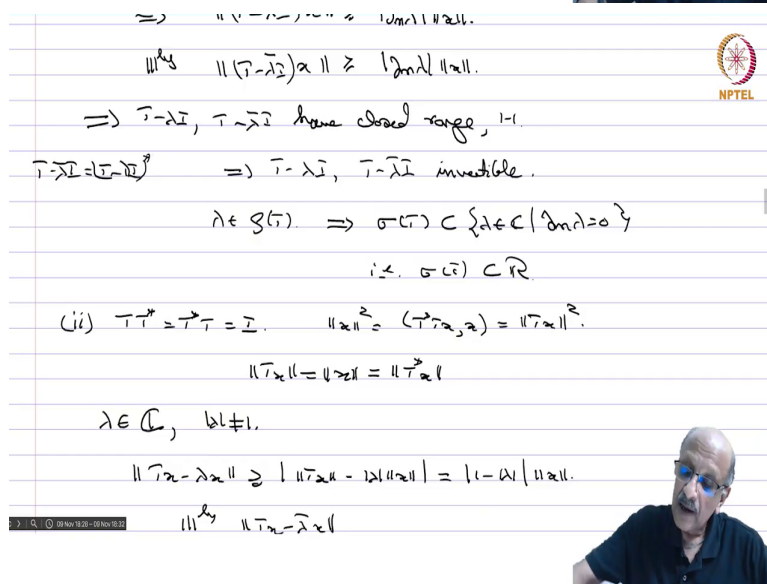 ⇒ ‖(T-λI)x‖ ≥ |Im λ| ‖x‖.
NPTEL
|||ly ‖(T-λ̄I)x‖ ≥ |Im λ| ‖x‖.
⇒ T-λI, T-λ̄I have closed range, 1-1.
T-λ̄I = (T-λI)* ⇒ T-λI, T-λ̄I invertible.
λ∈ρ(T). ⇒ σ(T) ⊂ {λ∈ℂ | Im λ=0}
i.e. σ(T) ⊂ ℝ
(ii) TT* = T*T = I. ‖x‖² = (T*Tx, x) = ‖Tx‖².
‖Tx‖ = ‖x‖ = ‖T*x‖
λ∈ℂ, |λ|≠1.
‖Tx-λx‖ ≥ | ‖Tx‖ - |λ|‖x‖ | = |1-|λ|| ‖x‖.
|||ly ‖Tx-λ̄x‖
09 Nov 18:28 - 09 Nov 18:32